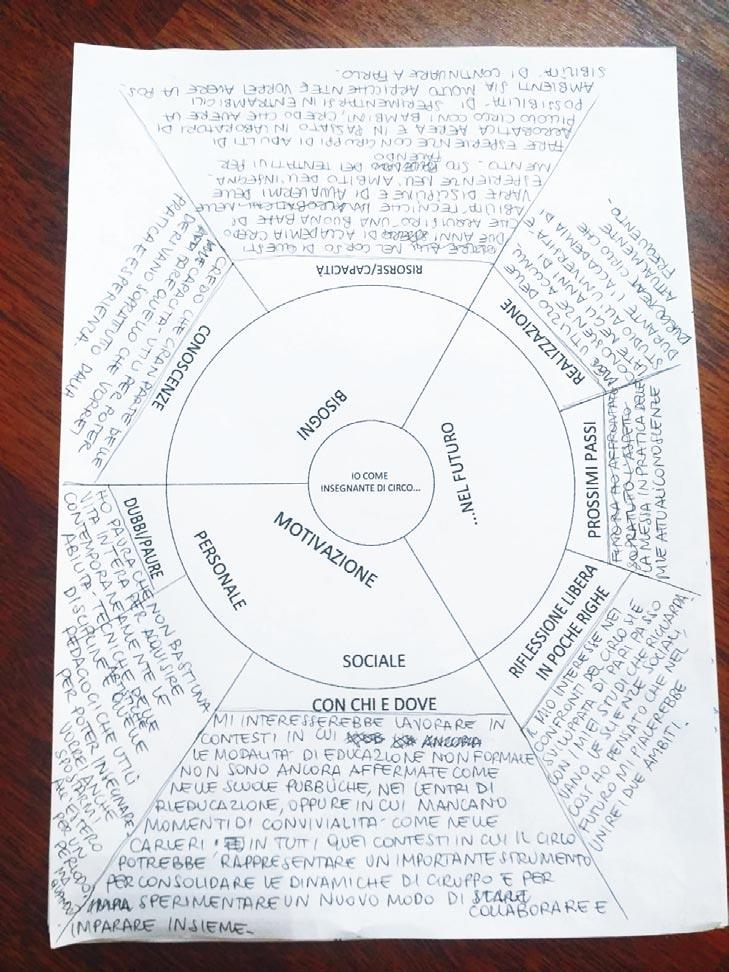 IO COME
INSEGNANTE DI CIRCO...
BISOGNI
...NEL FUTURO
MOTIVAZIONE
PERSONALE
SOCIALE
RISORSE/CAPACITÀ
NEL CORSO DI QUESTI
DUE ANNI DI ACCADEMIA CREDO
CHE ACQUISIRÒ UNA BUONA BASE DI
ABILITÀ TECNICHE NELLE
VARIE DISCIPLINE E DI AVVALERMI DELLE
ESPERIENZE NELL'AMBITO DELL'INSEGNA-
MENTO. STO FACENDO DEI TENTATIVI PER
FARE ESPERIENZE CON GRUPPI DI ADULTI DI
ACROBATICA AEREA E IN PASSATO IN LABORATORI DI
PICCOLO CIRCO CON I BAMBINI, CREDO CHE AVERE LA
POSSIBILITÀ DI SPERIMENTARSI IN ENTRAMBI GLI
AMBIENTI SIA MOLTO ARRICCHENTE E VORREI AVERE LA POS-
SIBILITÀ DI CONTINUARE A FARLO.
REALIZZAZIONE
UTILIZZO DELLE
CONOSCENZE ACQUI-
SITE NEGLI ANNI DI
STUDIO ALL'UNIVERSITÀ E
DURANTE L'ACCADEMIA DI
CIRCO CHE
ATTUALMENTE
FREQUENTO.
PROSSIMI PASSI
FINORA HO APPROFONDITO
SOPRATUTTO L'ASPETTO
LA MESSA IN PRATICA DELLE
MIE ATTUALI CONOSCENZE
RIFLESSIONE LIBERA
IN POCHE RIGHE
IL MIO INTERESSE NEI
CONFRONTI DEL CIRCO SI È
SVILUPPATO DI PARI PASSO
CON I MIEI STUDI CHE RIGUARDA-
VANO LE SCIENZE SOCIALI,
COSÌ HO PENSATO CHE NEL
FUTURO MI PIACEREBBE
UNIRE I DUE AMBITI!
CON CHI E DOVE
MI INTERESSEREBBE LAVORARE IN
CONTESTI IN CUI ANCORA
LE MODALITÀ DI EDUCAZIONE NON FORMALE
NON SONO ANCORA AFFERMATE COME
NELLE SCUOLE PUBBLICHE, NEI CENTRI DI
RIEDUCAZIONE, OPPURE IN CUI MANCANO
MOMENTI DI CONVIVIALITÀ COME NELLE
CARCERI. E IN TUTTI QUEI CONTESTI IN CUI IL CIRCO
POTREBBE RAPPRESENTARE UN IMPORTANTE STRUMENTO
PER CONSOLIDARE LE DINAMICHE DI GRUPPO E PER
IMPA SPERIMENTARE UN NUOVO MODO DI STARE
COLLABORARE E
IMPARARE INSIEME.
DUBBI/PAURE
HO PAURA CHE NON BASTI UNA
VITA INTERA PER AQUISIRE
CONTEMPORANEAMENTE LE
ABILITÀ TECNICHE DELLE
DISCIPLINE E QUELLE
PEDAGOGICHE UTILI
PER POTER INSEGNARE
VORREI ANCHE
SPOSTARMI
ALL'ESTERO
PER UN
PERIODO
MA
QUANDO?
CONOSCENZE
CREDO CHE GRAN PARTE DELLE
MIE CAPACITÀ UTILI PER POTER
FARE QUELLO CHE VORREI
DERIVANO SOPRATUTTO DALLA
PRATICA E ESPERIENZA